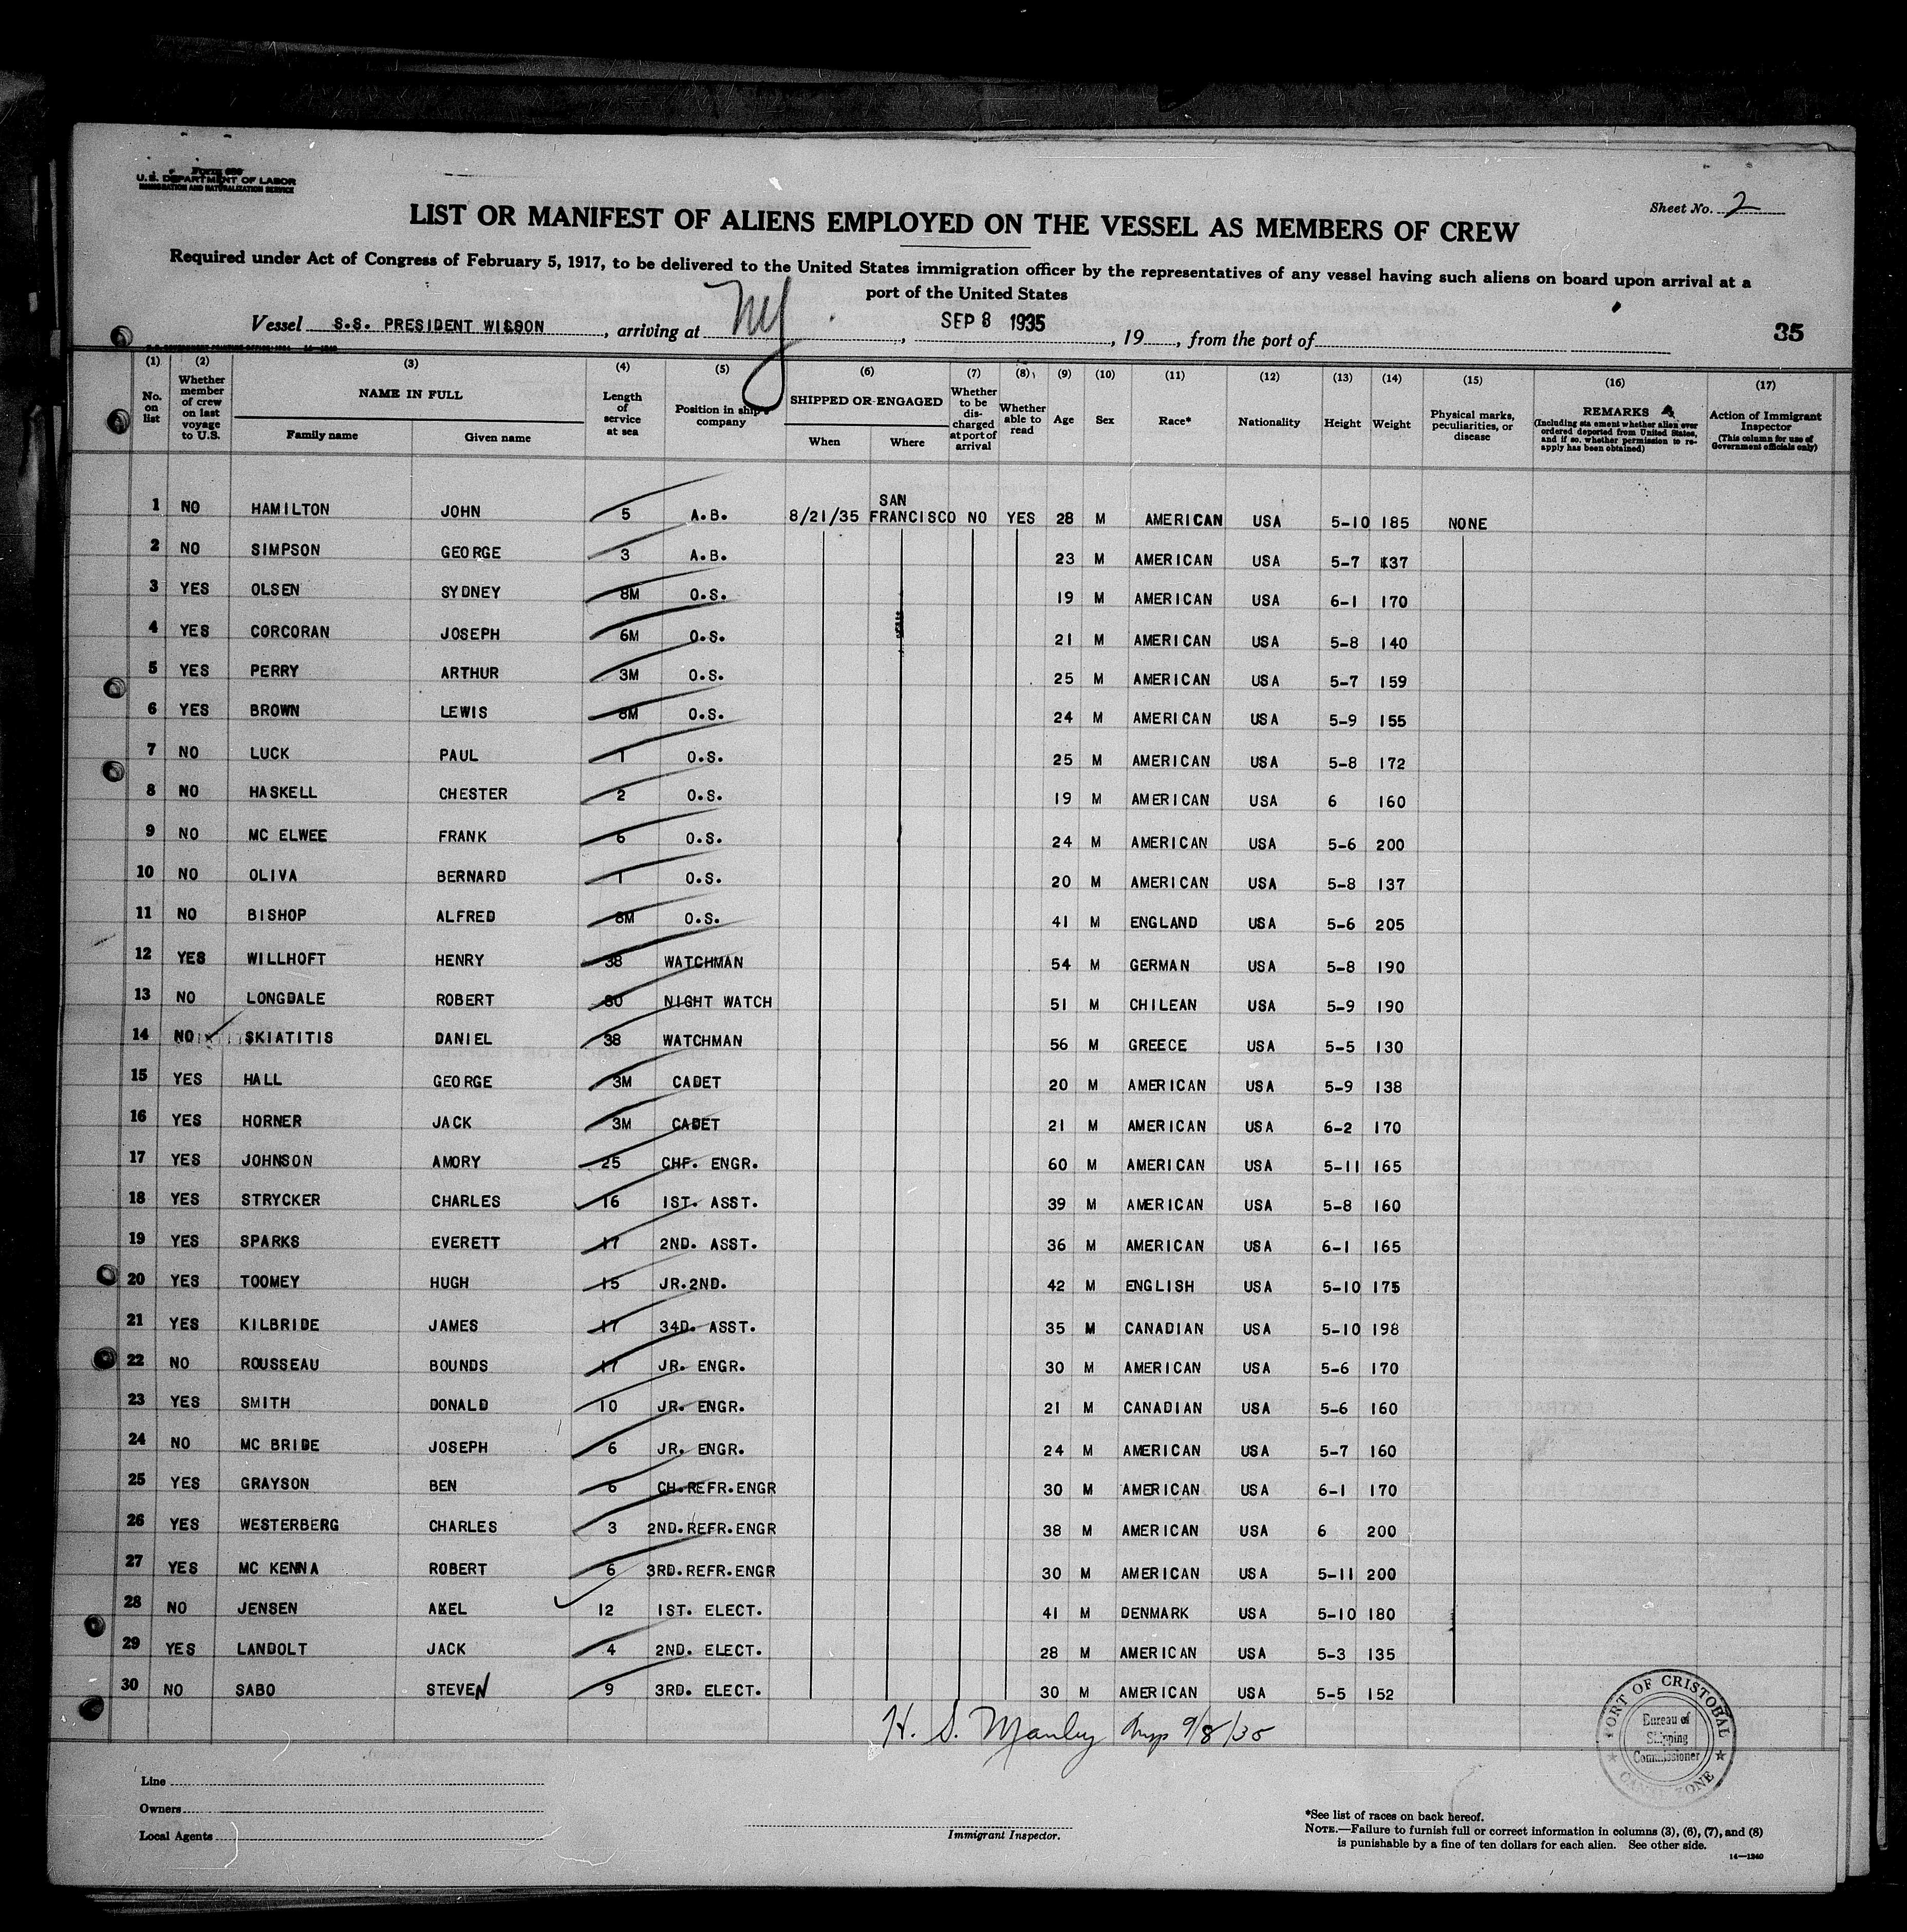 Form 689
U.S. DEPARTMENT OF LABOR
IMMIGRATION AND NATURALIZATION SERVICE
Sheet No. 2
LIST OR MANIFEST OF ALIENS EMPLOYED ON THE VESSEL AS MEMBERS OF CREW
Required under Act of Congress of February 5, 1917, to be delivered to the United States immigration officer by the representatives of any vessel having such aliens on board upon arrival at a
port of the United States
Vessel S.S. PRESIDENT WILSON, arriving at NY, SEP 8 1935, 19, from the port of
35
(1) (2) (3) (4) (5) (6) (7) (8) (9) (10) (11) (12) (13) (14) (15) (16) (17)
No. on list
Whether member of crew on last voyage to U.S.
NAME IN FULL
Family name Given name
Length of service at sea
Position in ship's company
SHIPPED OR ENGAGED
When Where
Whether to be discharged at port of arrival
Whether able to read
Age Sex Race* Nationality Height Weight
Physical marks, peculiarities, or disease
REMARKS
(Including statement whether alien ever ordered deported from United States, and if so, whether permission to reapply has been obtained)
Action of Immigrant Inspector
(This column for use of Government officials only)
1 NO HAMILTON JOHN 5 A.B. 8/21/35 SAN FRANCISCO NO YES 28 M AMERICAN USA 5-10 185 NONE
2 NO SIMPSON GEORGE 3 A.B. 23 M AMERICAN USA 5-7 137
3 YES OLSEN SYDNEY 8M O.S. 19 M AMERICAN USA 6-1 170
4 YES CORCORAN JOSEPH 6M O.S. 21 M AMERICAN USA 5-8 140
5 YES PERRY ARTHUR 3M O.S. 25 M AMERICAN USA 5-7 159
6 YES BROWN LEWIS 8M O.S. 24 M AMERICAN USA 5-9 155
7 NO LUCK PAUL 1 O.S. 25 M AMERICAN USA 5-8 172
8 NO HASKELL CHESTER 2 O.S. 19 M AMERICAN USA 6 160
9 NO MC ELWEE FRANK 6 O.S. 24 M AMERICAN USA 5-6 200
10 NO OLIVA BERNARD 1 O.S. 20 M AMERICAN USA 5-8 137
11 NO BISHOP ALFRED 8M O.S. 41 M ENGLAND USA 5-6 205
12 YES WILLHOFT HENRY 38 WATCHMAN 54 M GERMAN USA 5-8 190
13 NO LONGDALE ROBERT 30 NIGHT WATCH 51 M CHILEAN USA 5-9 190
14 NO SKIATITIS DANIEL 38 WATCHMAN 56 M GREECE USA 5-5 130
15 YES HALL GEORGE 3M CADET 20 M AMERICAN USA 5-9 138
16 YES HORNER JACK 3M CADET 21 M AMERICAN USA 6-2 170
17 YES JOHNSON AMORY 25 CHF. ENGR. 60 M AMERICAN USA 5-11 165
18 YES STRYCKER CHARLES 16 1ST. ASST. 39 M AMERICAN USA 5-8 160
19 YES SPARKS EVERETT 17 2ND. ASST. 36 M AMERICAN USA 6-1 165
20 YES TOOMEY HUGH 15 JR.2ND. 42 M ENGLISH USA 5-10 175
21 YES KILBRIDE JAMES 17 34D. ASST. 35 M CANADIAN USA 5-10 198
22 NO ROUSSEAU BOUNDS 17 JR. ENGR. 30 M AMERICAN USA 5-6 170
23 YES SMITH DONALD 10 JR. ENGR. 21 M CANADIAN USA 5-6 160
24 NO MC BRIDE JOSEPH 6 JR. ENGR. 24 M AMERICAN USA 5-7 160
25 YES GRAYSON BEN 6 CH.REFR.ENGR 30 M AMERICAN USA 6-1 170
26 YES WESTERBERG CHARLES 3 2ND.REFR.ENGR 38 M AMERICAN USA 6 200
27 YES MC KENNA ROBERT 6 3RD.REFR.ENGR 30 M AMERICAN USA 5-11 200
28 NO JENSEN AKEL 12 1ST. ELECT. 41 M DENMARK USA 5-10 180
29 YES LANDOLT JACK 4 2ND. ELECT. 28 M AMERICAN USA 5-3 135
30 NO SABO STEVEN 9 3RD. ELECT. 30 M AMERICAN USA 5-5 152
H. S. Manley Insp 9/8/35
PORT OF CRISTOBAL
Bureau of
Shipping
Commissioner
CANAL ZONE
Line
Owners
Local Agents
Immigrant Inspector.
*See list of races on back hereof.
NOTE.—Failure to furnish full or correct information in columns (3), (6), (7), and (8)
is punishable by a fine of ten dollars for each alien. See other side.
14—1240